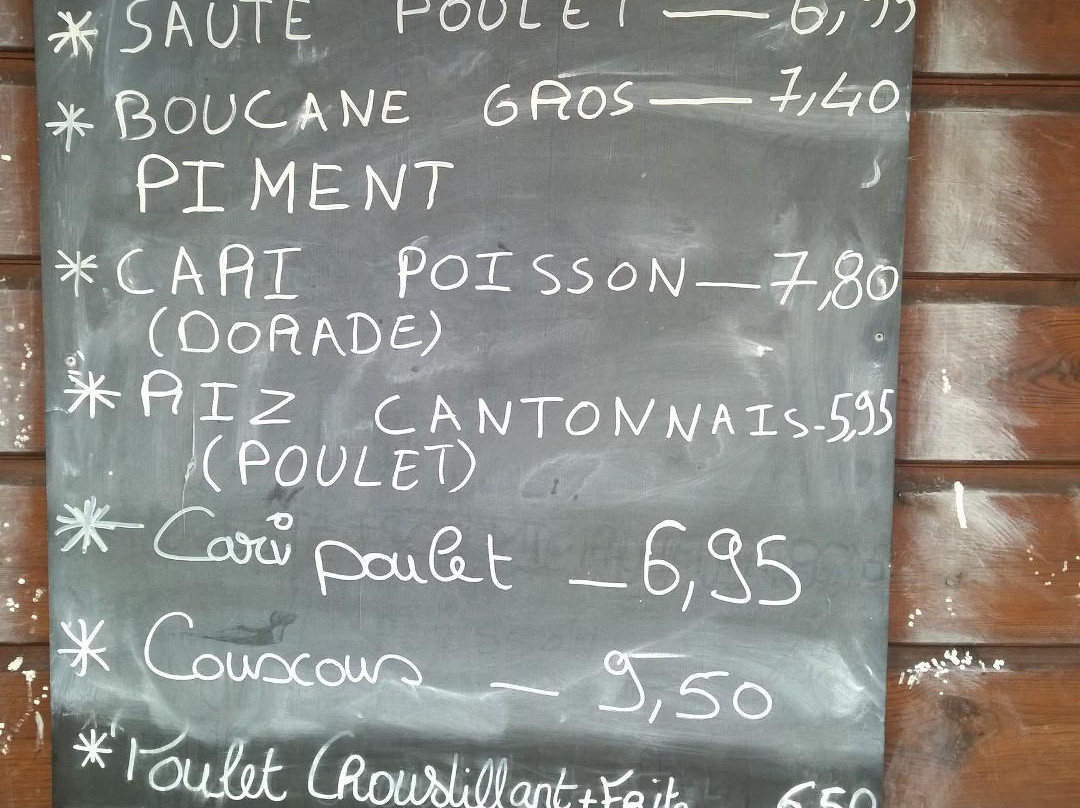 * SAUTÉ POULET — 6,95
* BOUCANE GROS — 7,40
PIMENT
* CARI POISSON — 7,80
(DORADE)
* RIZ CANTONNAIS - 5,95
(POULET)
* Cari poulet — 6,95
* Couscous — 9,50
* Poulet Croustillant + Frite 6,50